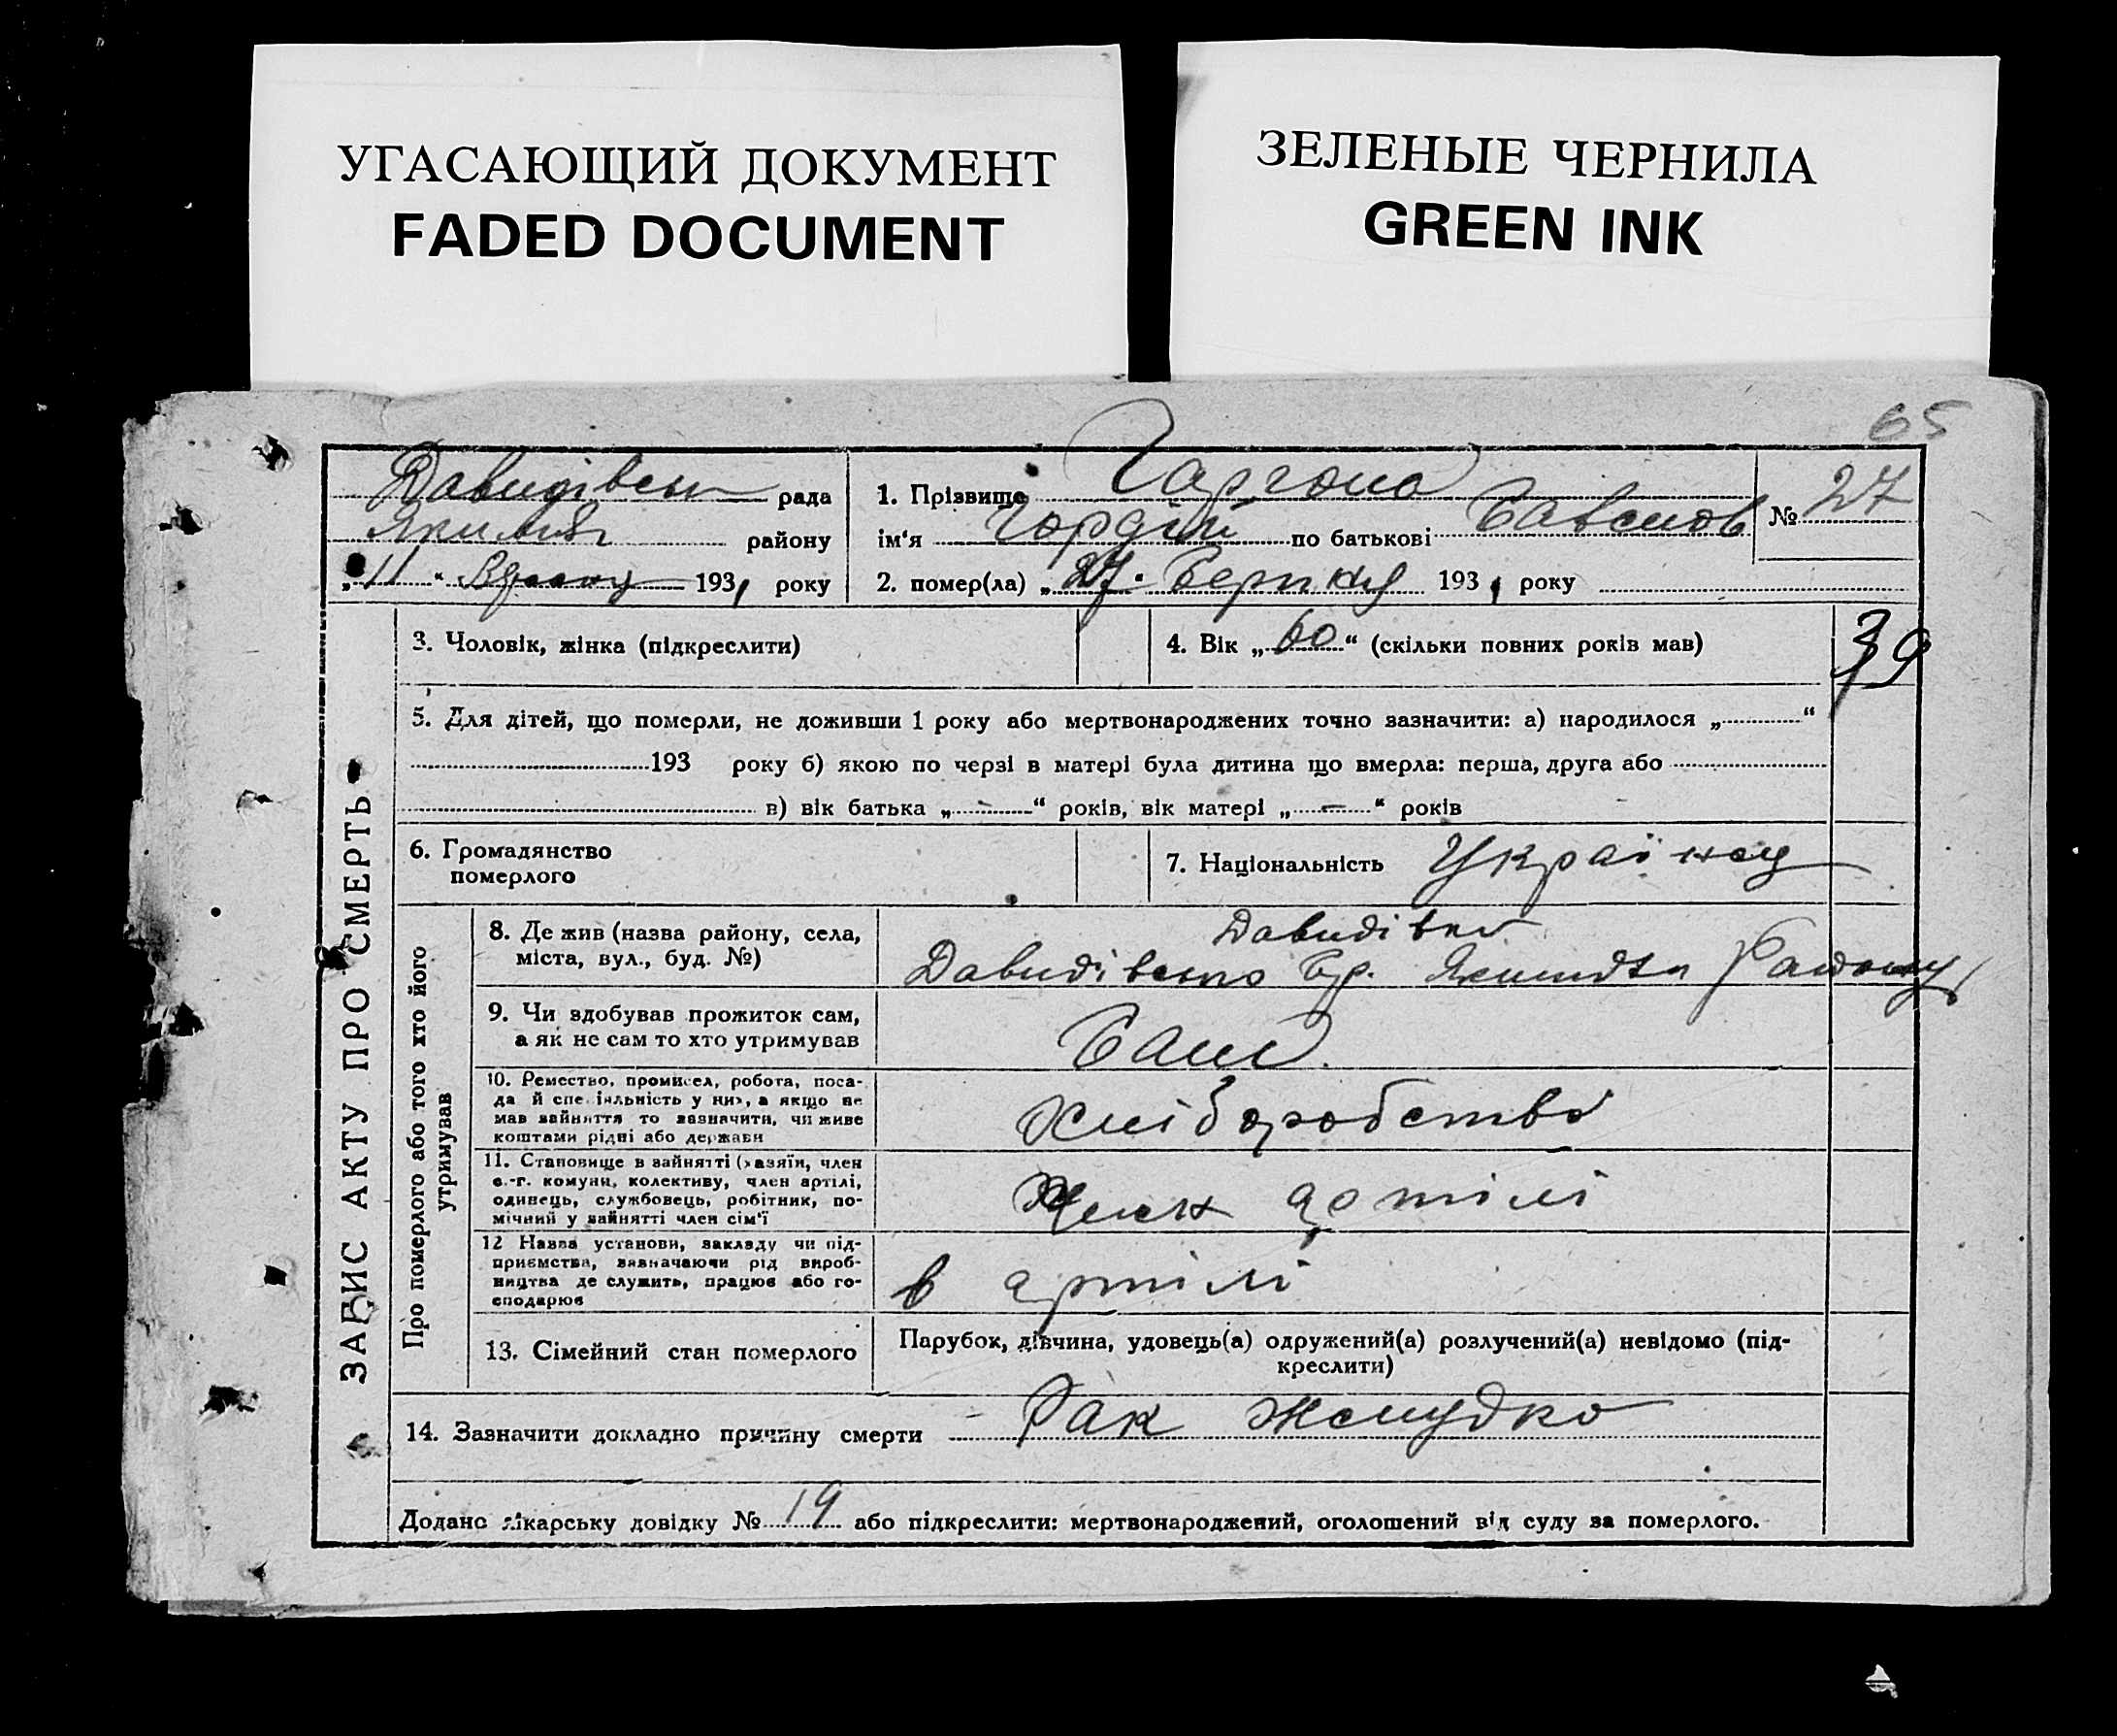 УГАСАЮЩИЙ ДОКУМЕНТ
FADED DOCUMENT
ЗЕЛЕНЫЕ ЧЕРНИЛА
GREEN INK
65
рада
району
„11“ 1931 року
1. Прізвище Гаргона
ім'я Гордій по батькові
2. помер(ла) „27“ 1931 року
№ 27
ЗАПИС АКТУ ПРО СМЕРТЬ
3. Чоловік, жінка (підкреслити)
4. Вік „60“ (скільки повних років мав)
39
5. Для дітей, що померли, не доживши 1 року або мертвонароджених точно зазначити: а) народилося „ “
193 року б) якою по черзі в матері була дитина що вмерла: перша, друга або
в) вік батька „-“ років, вік матері „-“ років
6. Громадянство
померлого
7. Національність Українец
Про померлого або того хто його
утримував
8. Де жив (назва району, села,
міста, вул., буд. №)
Давидівка
9. Чи здобував прожиток сам,
а як не сам то хто утримував
Сам
10. Ремество, промисел, робота, поса-
да й спеціяльність у них, а якщо не
мав зайняття то зазначити, чи живе
коштами рідні або держави
Хліборобство
11. Становище в зайнятті (хазяїн, член
с.-г. комуни, колективу, член артілі,
одинець, службовець, робітник, по-
мічний у зайнятті член сім'ї
Член артілі
12 Назва установи, закладу чи під-
приємства, зазначаючи рід вироб-
ництва де служить, працює або го-
сподарює
в артілі
13. Сімейний стан померлого
Парубок, дівчина, удовець(а) одружений(а) розлучений(а) невідомо (під-
креслити)
14. Зазначити докладно причину смерти Рак желудко
Додано лікарську довідку № 19 або підкреслити: мертвонароджений, оголошений від суду за померлого.